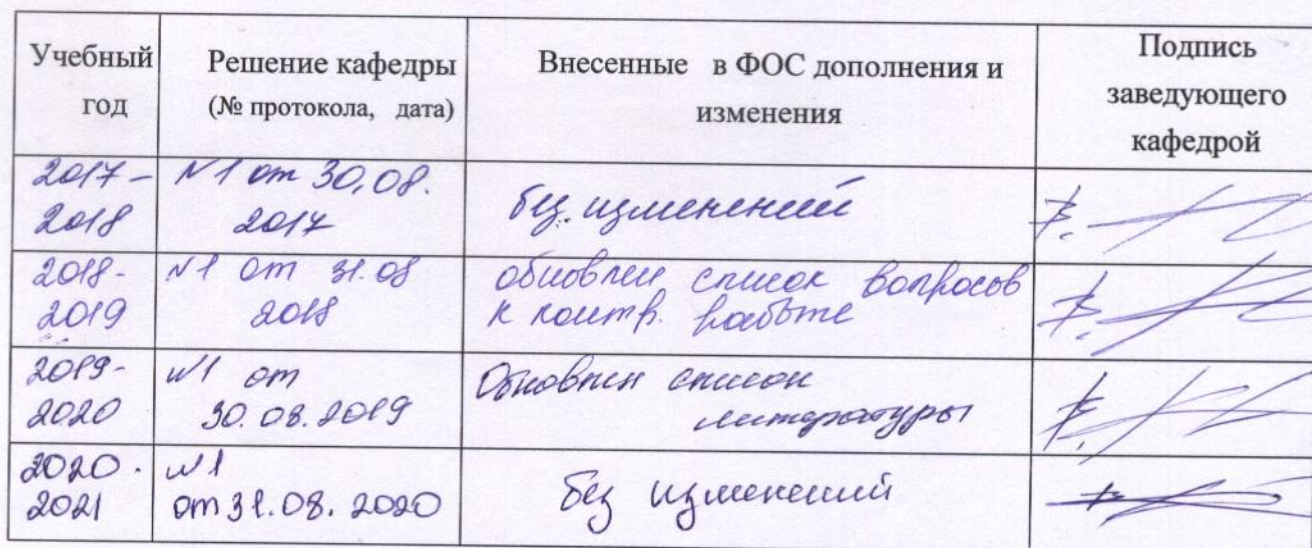 Учебный год
Решение кафедры
(№ протокола, дата)
Внесенные в ФОС дополнения и
изменения
Подпись
заведующего
кафедрой
2017-
2018
№1 от 30.08.
2017
без изменений
2018-
2019
№1 от 31.08
2018
обновлен список вопросов
к контр. работе
2019-
2020
№1 от
30.08.2019
Обновлен список
литературы
2020-
2021
№1
от 31.08.2020
Без изменений